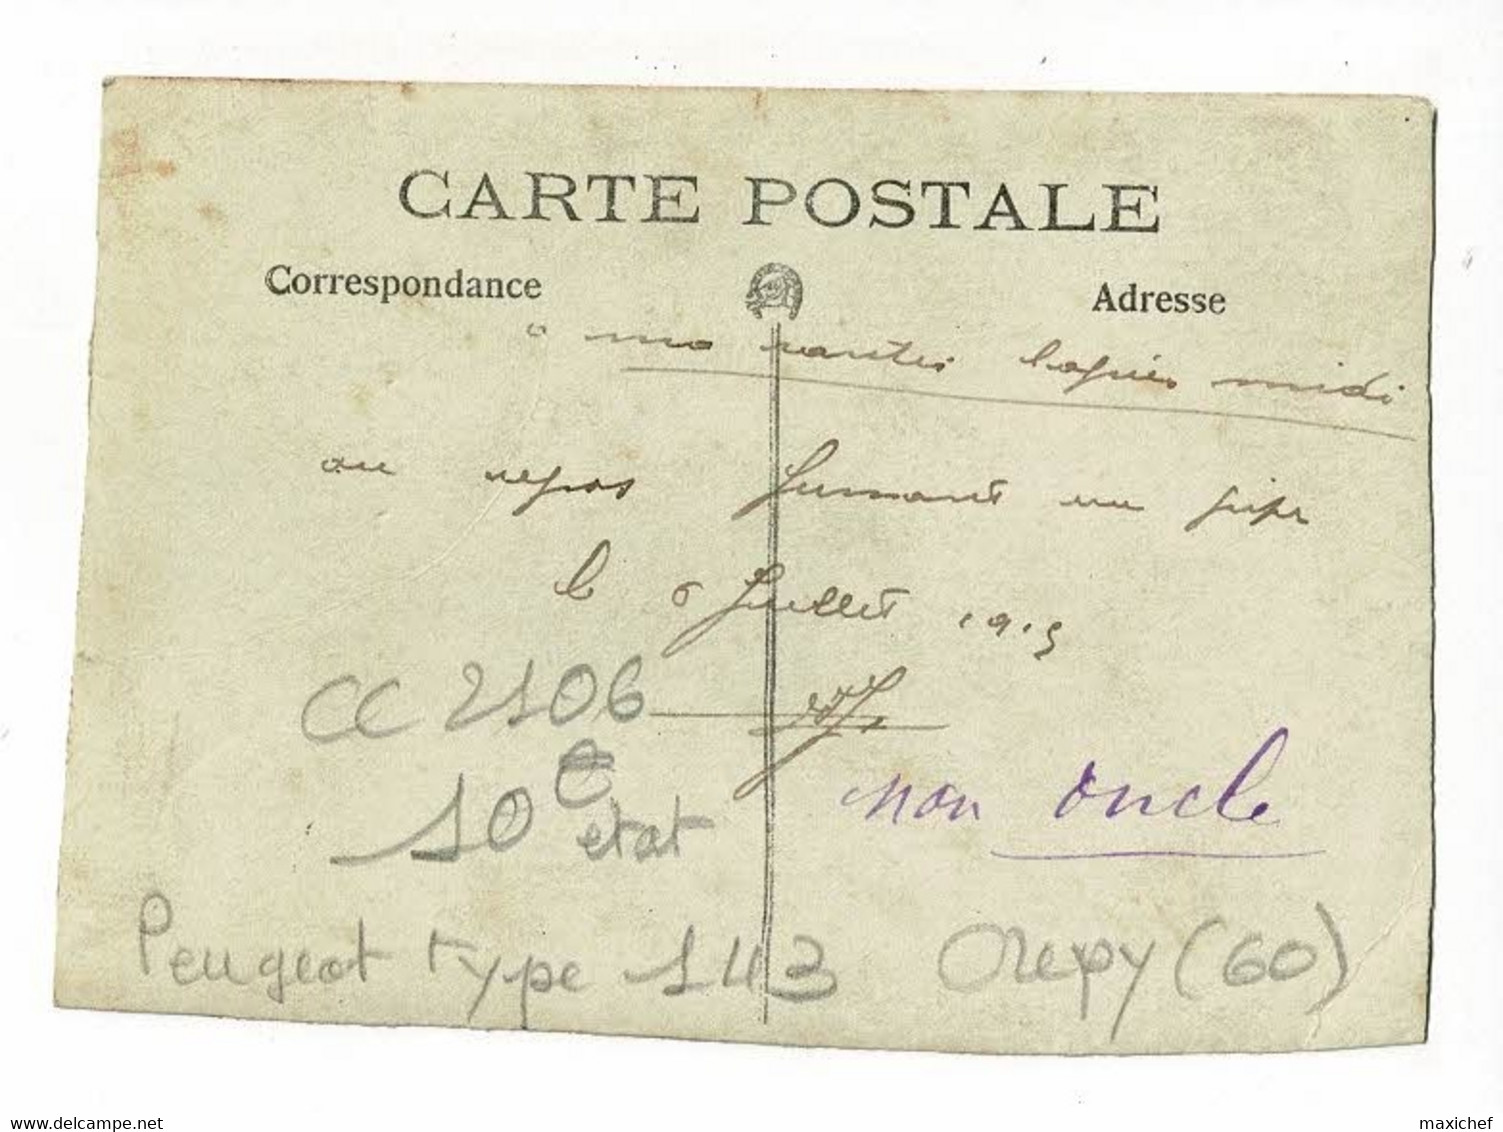 CARTE POSTALE
Correspondance
Adresse
a ma lapriès midi
au repos fumant un pipe
le 6 Juillet 1915
CC 2106
10 €
etat
mon oncle
Peugeot type 143 Orepy (60)
www.delcampe.net
maxichef